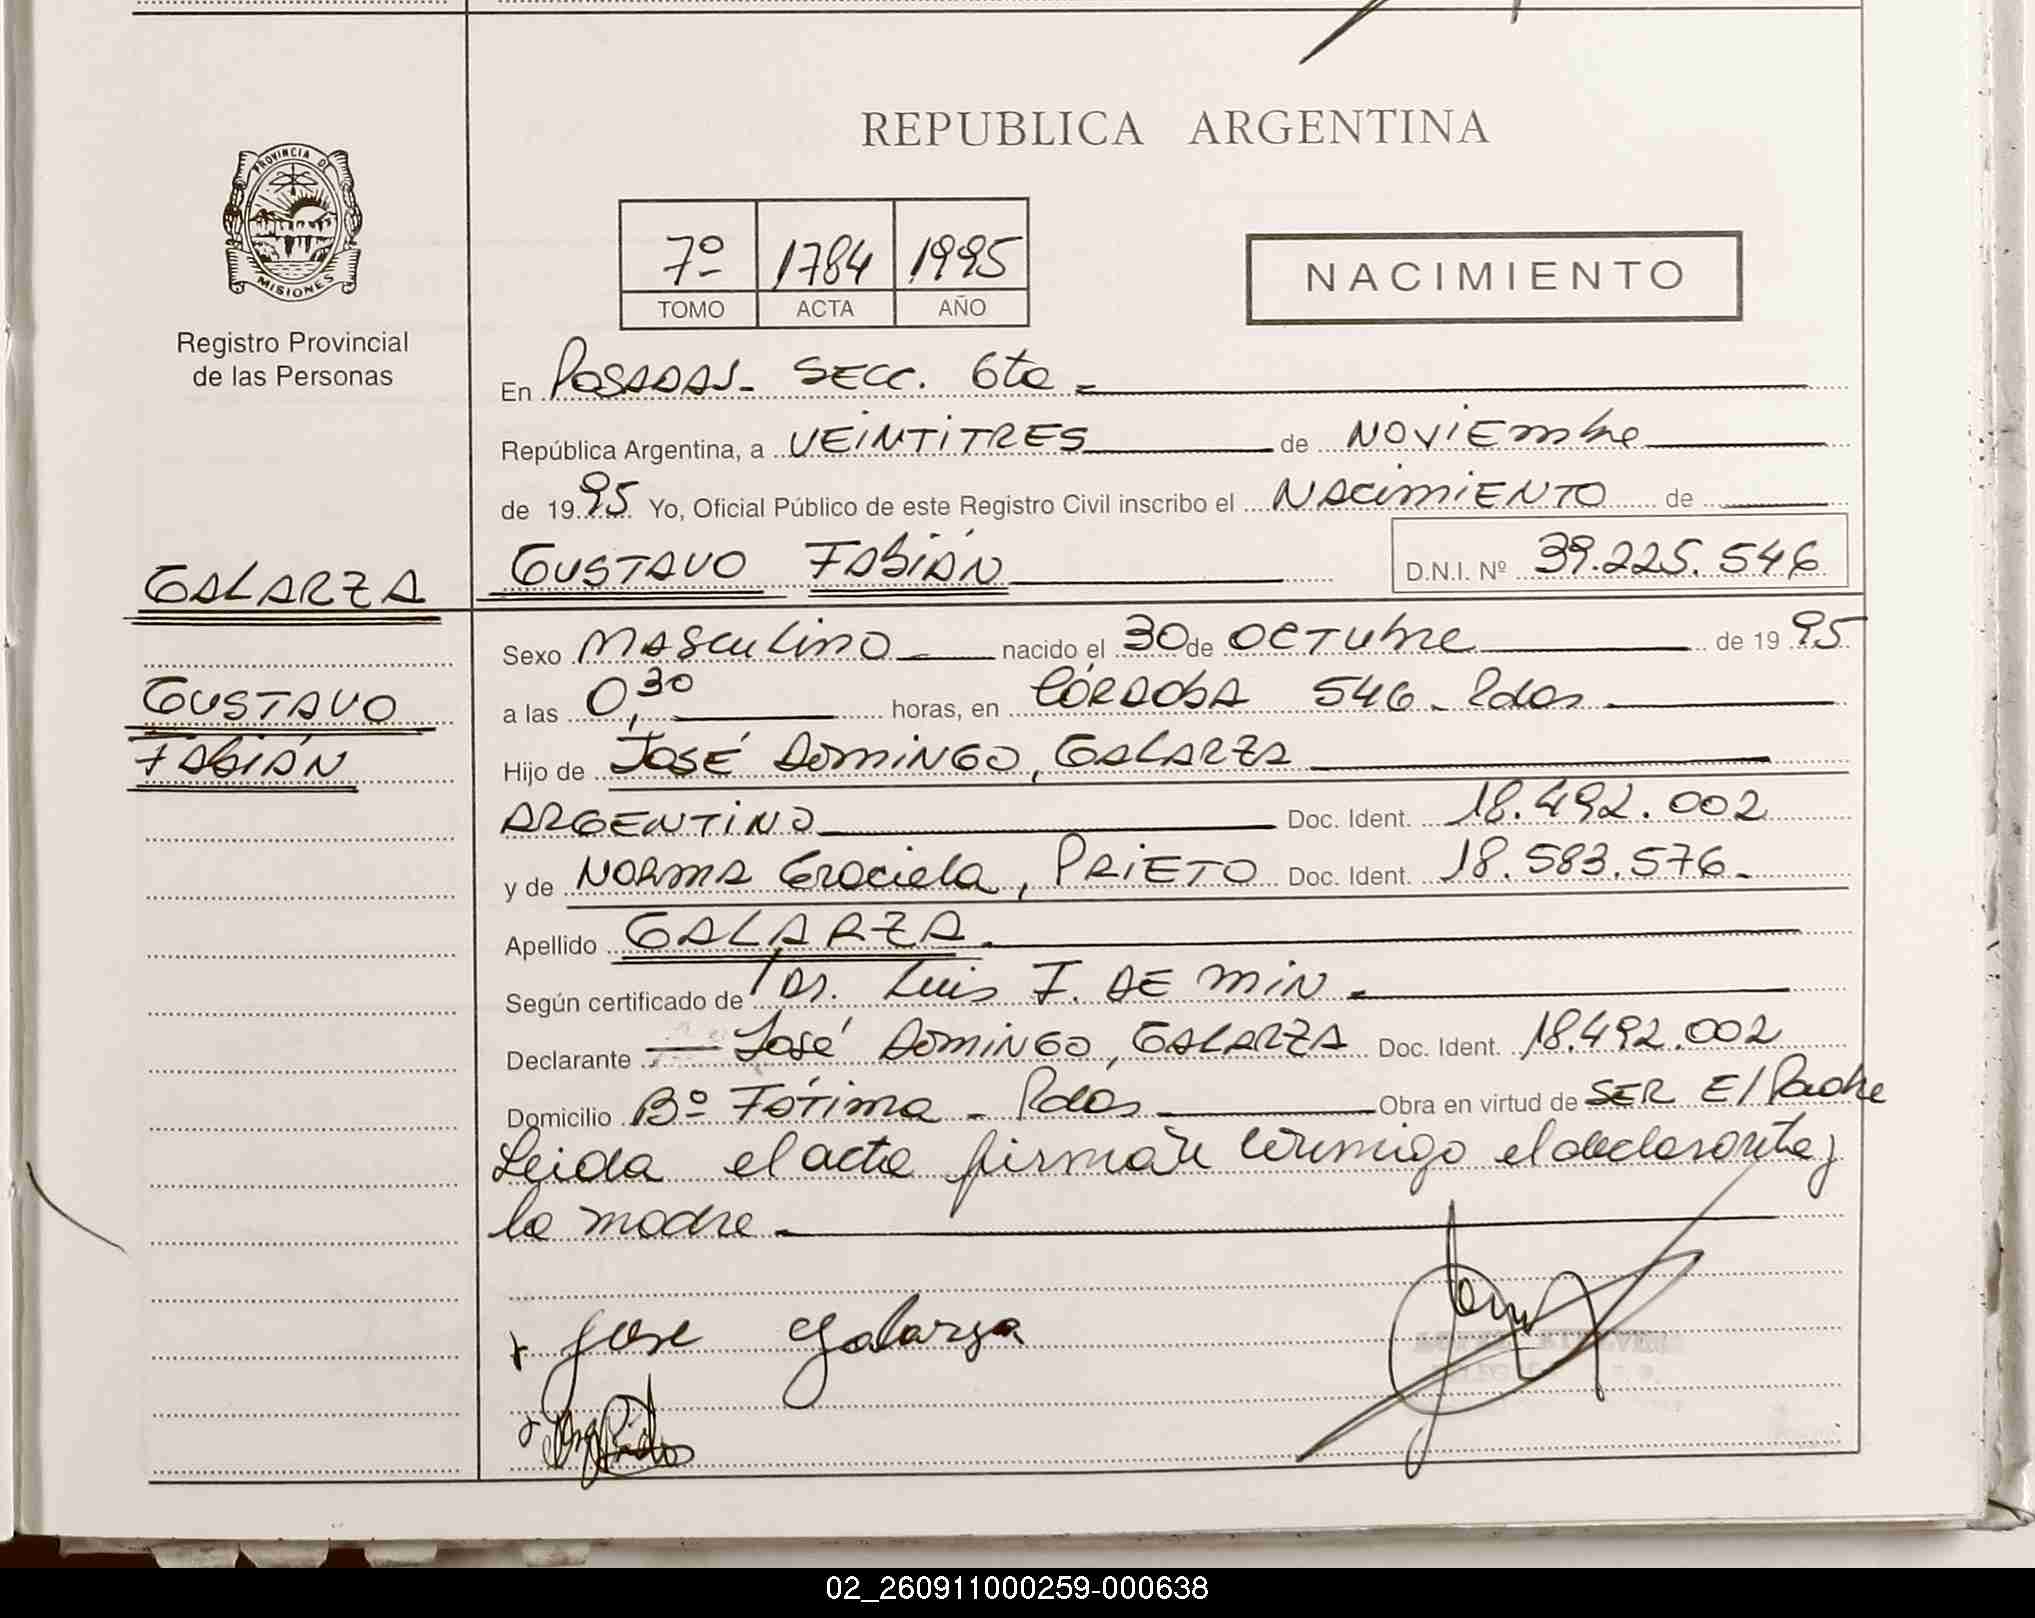 REPUBLICA ARGENTINA
PROVINCIA DE
MISIONES
Registro Provincial
de las Personas
7º 1784 1995
TOMO ACTA AÑO
NACIMIENTO
En POSADAS- SECC. 6ta
República Argentina, a VEINTITRES de NOVIEmbre
de 1995 Yo, Oficial Público de este Registro Civil inscribo el NACimiENTO de
GALARZA
GUSTAVO FABIÁN D.N.I. Nº 39.225.546
Sexo MASCULINO nacido el 30 de OCTUbre de 1995
GUSTAVO
a las 0,30 horas, en CÓRDOBA 546 - Pdas
FABIÁN
Hijo de JOSÉ DOMINGO, GALARZA
ARGENTINO Doc. Ident. 18.492.002
y de NORMA Graciela, PRIETO Doc. Ident. 18.583.576.
Apellido GALARZA.
Según certificado de Dr. Luis F. DE MIN.
Declarante José DOMINGO, GALARZA Doc. Ident. 18.492.002
Domicilio Bº Fátima - Pdas Obra en virtud de SER El Padre
Leida el acta firman conmigo el declarante y
la madre.
Jose Galarza
02_260911000259-000638